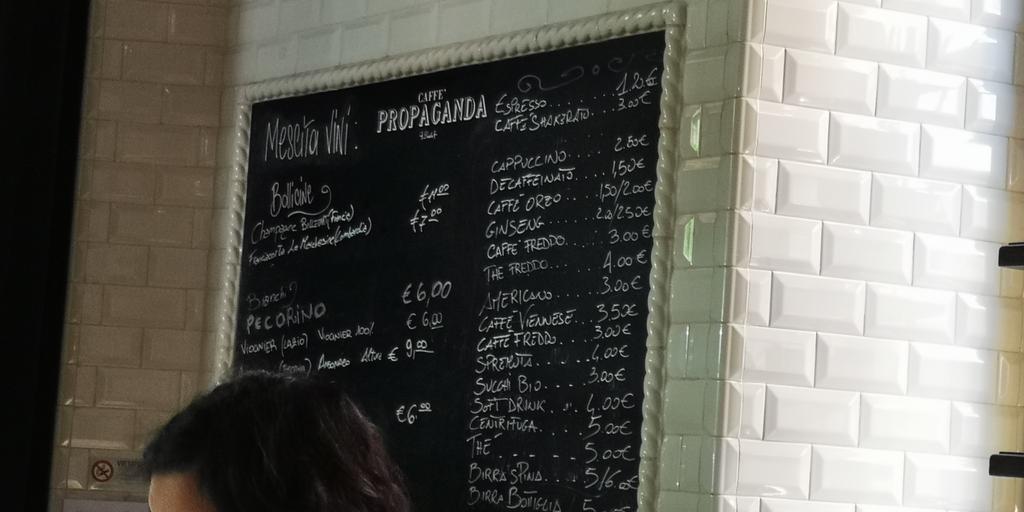 CAFFE'
PROPAGANDA
Mescita Vini:
Bollicine
Champagne
€7,00
Bianchi
PECORINO €6,00
VIOGNIER (LAZIO) VIOGNIER 100% €6,00
€9,00
€6,00
ESPRESSO........1.20€
CAFFE SHAKERATO..3.00€
CAPPUCCINO....2.80€
DECAFFEINATO....1,50€
CAFFE ORZO....1,50/2.00€
GINSENG.....2.00/2.50€
CAFFE FREDDO...3.00€
THE FREDDO.....4.00€
AMERICANO....3.00€
CAFFE VIENNESE...3.50€
CAFFE FREDDO...3.00€
SPREMUTA.....4,00€
SUCCHI BIO....3.00€
SOFT DRINK....4.00€
CENTRIFUGA....5.00€
THE'......5.00€
BIRRA SPINA...5/6.00€
BIRRA BOTTIGLIA